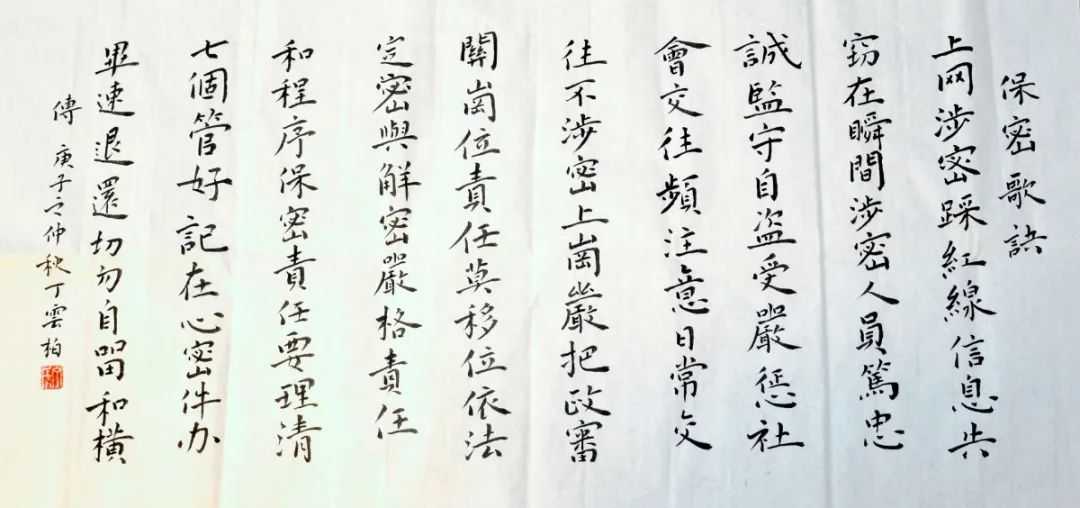 保密歌訣
上网涉密踩紅線信息失
窃在瞬間涉密人員篤忠
誠監守自盗受嚴惩社
會交往頻注意日常交
往不涉密上崗嚴把政審
關崗位責任莫移位依法
定密與解密嚴格責任
和程序保密責任要理清
七個管好記在心密件办
畢速退還切勿自留和横
傳 庚子之仲秋丁雲柏